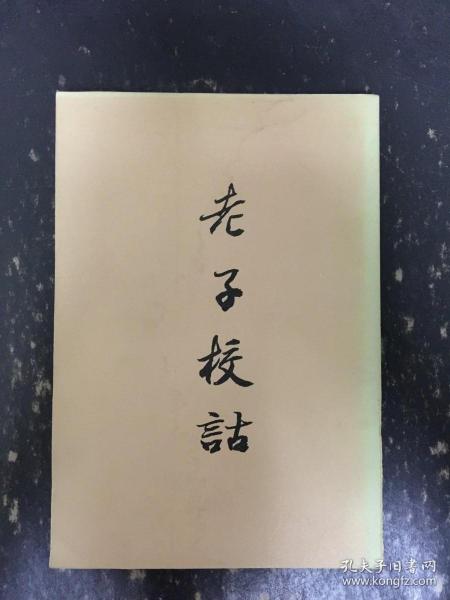 老子校詁
孔夫子旧书网
www.kongfz.com